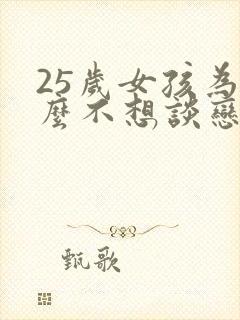 25歲女孩為
麼不想談戀
甄歌